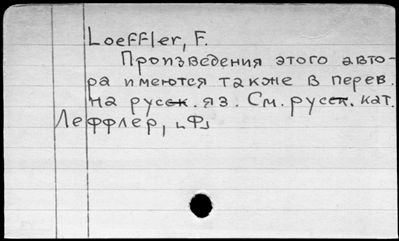 Loeffler, F.
Произведения этого авто-
ра имеются также в перев.
на русск. яз. См. русск. кат.
Леффлер, ⌞Ф⌟